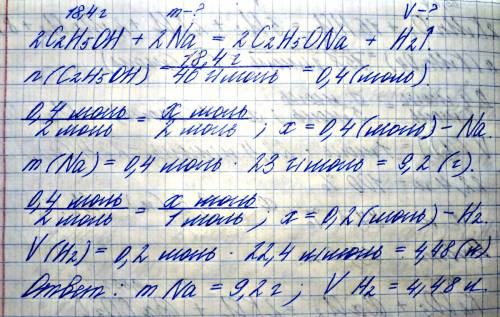 18,4 г m-? V-?
2C2H5OH + 2Na = 2C2H5ONa + H2↑.
n(C2H5OH) = 18,4 г / 46 г/моль = 0,4 (моль).
0,4 моль / 2 моль = x моль / 2 моль ; x = 0,4 (моль) - Na
m(Na) = 0,4 моль · 23 г/моль = 9,2 (г).
0,4 моль / 2 моль = x моль / 1 моль ; x = 0,2 (моль) - H2.
V(H2) = 0,2 моль · 22,4 л/моль = 4,48 (л)
Ответ: m Na = 9,2 г ; V H2 = 4,48 л.